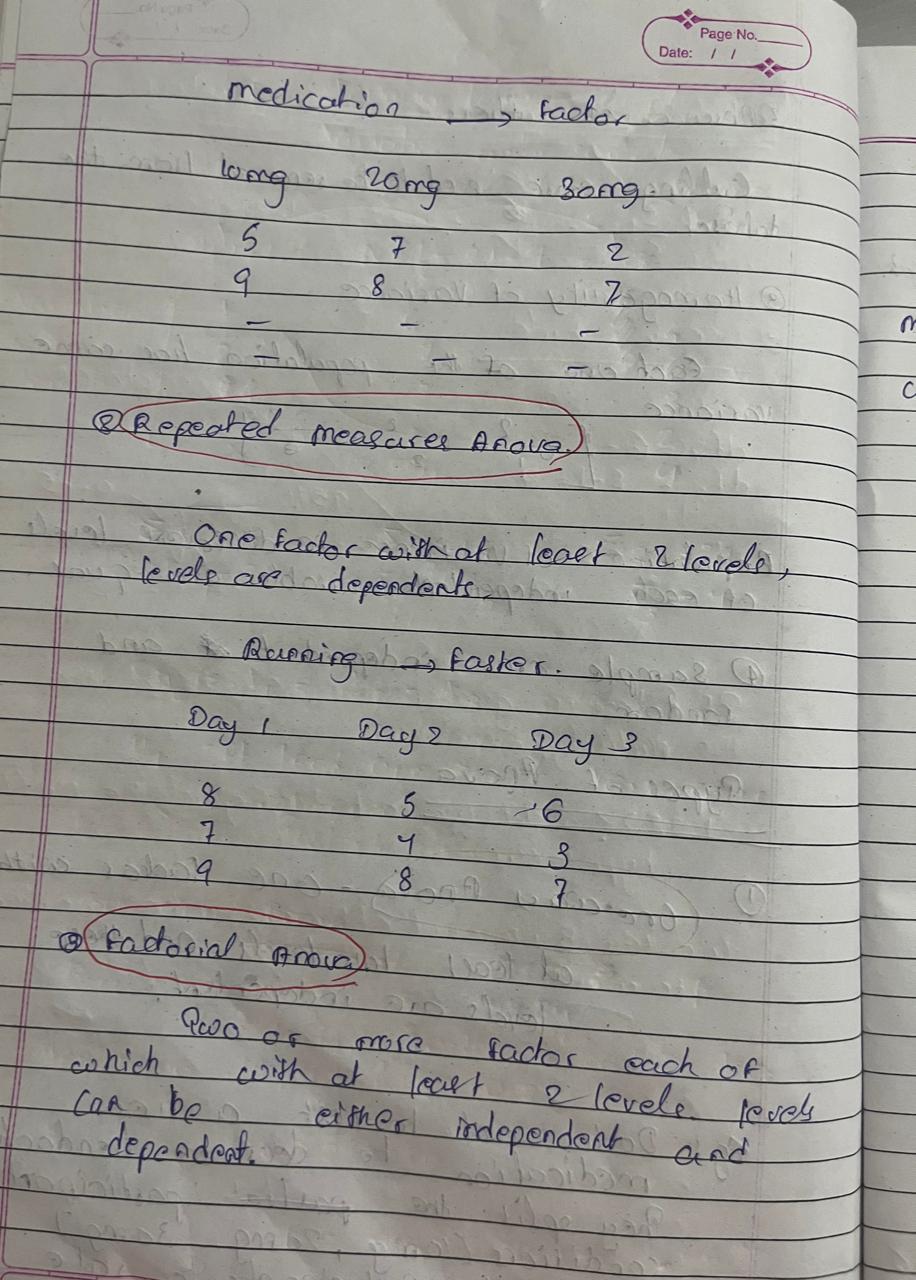 Page No.
Date: / /
medication → factor
10mg 20mg 30mg
5 7 2
9 8 7
– – –
– – –
② Repeated measures Anova.
One factor with at least 2 levels,
levels are dependents.
Running → faster.
Day 1 Day 2 Day 3
8 5 6
7 4 3
9 8 7
③ factorial Anova.
Two or more factor each of
which with at least 2 levels levels
can be either independent and
dependent.